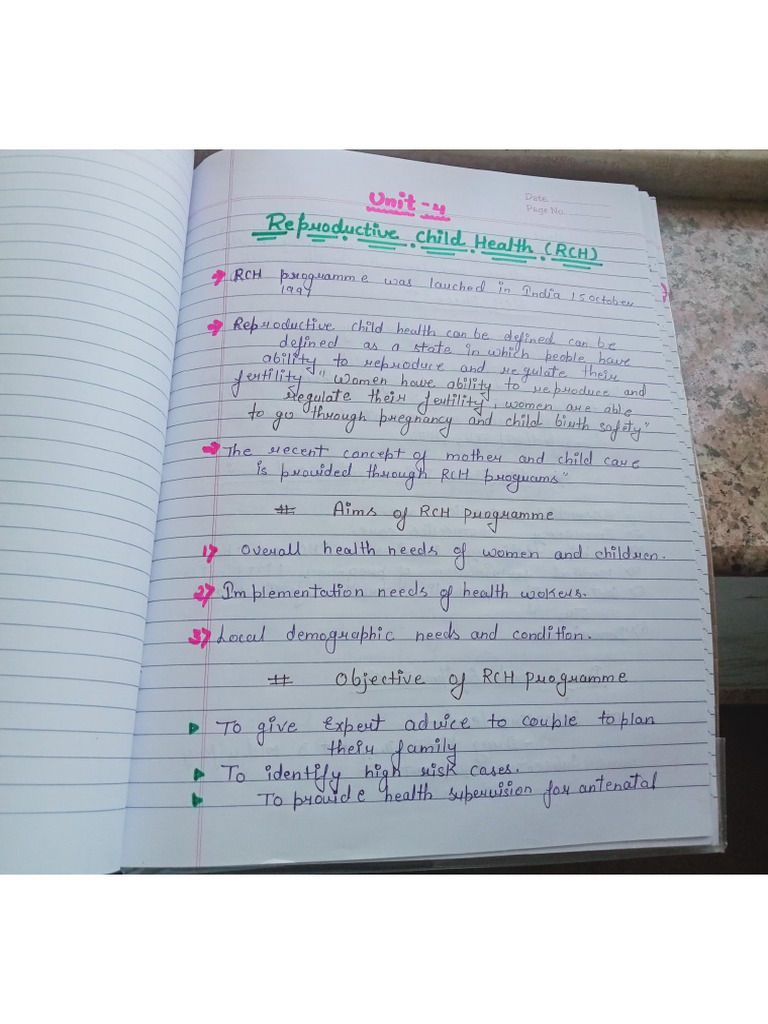 Date
Page No.
Unit - 4
Reproductive Child Health (RCH)
→ RCH programme was lauched in India 15 October
1997
→ Reproductive child health can be defined can be
defined as a state in which people have
ability to reproduce and regulate their
fertility " Women have ability to reproduce and
regulate their fertility, women are able
to go through pregnancy and child birth safety"
→ The recent concept of mother and child care
is provided through RCH programs"
# Aims of RCH programme
1) Overall health needs of women and children.
2) Implementation needs of health wokers.
3) Local demographic needs and condition.
# Objective of RCH programme
▶ To give Expert advice to couple to plan
their family
▶ To identify high risk cases.
▶ To provide health supervision for antenatal